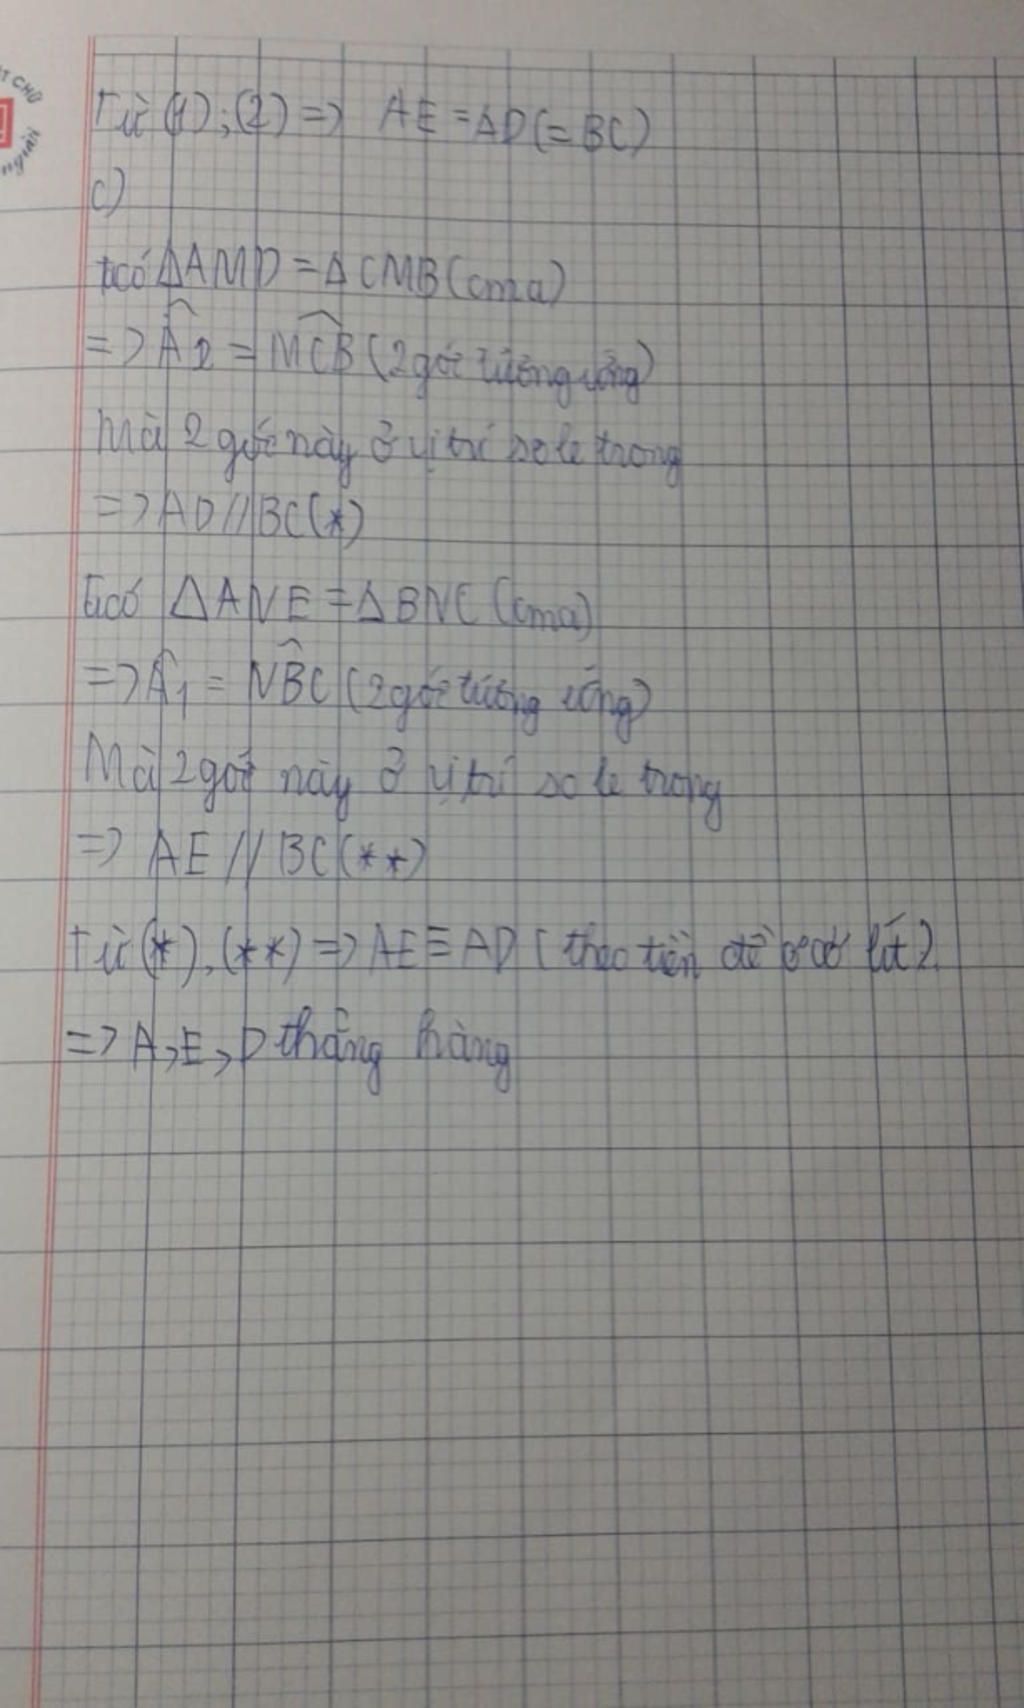 Từ (1); (2) => AE = AD (= BC)
c)
tcó ΔAMD = ΔCMB (cma)
=> Â2 = MĈB (2 góc tương ứng)
Mà 2 góc này ở vị trí so le trong
=> AD // BC (*)
tcó ΔANE = ΔBNC (cma)
=> Â1 = NB̂C (2 góc tương ứng)
Mà 2 góc này ở vị trí so le trong
=> AE // BC (**)
Từ (*), (**) => AE ≡ AD (theo tiên đề ơ cơ lít).
=> A, E, D thẳng hàng